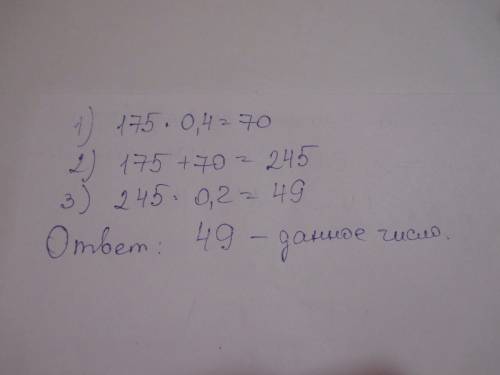 1) 175 · 0,4 = 70
2) 175 + 70 = 245
3) 245 · 0,2 = 49
Ответ: 49 – данное число.